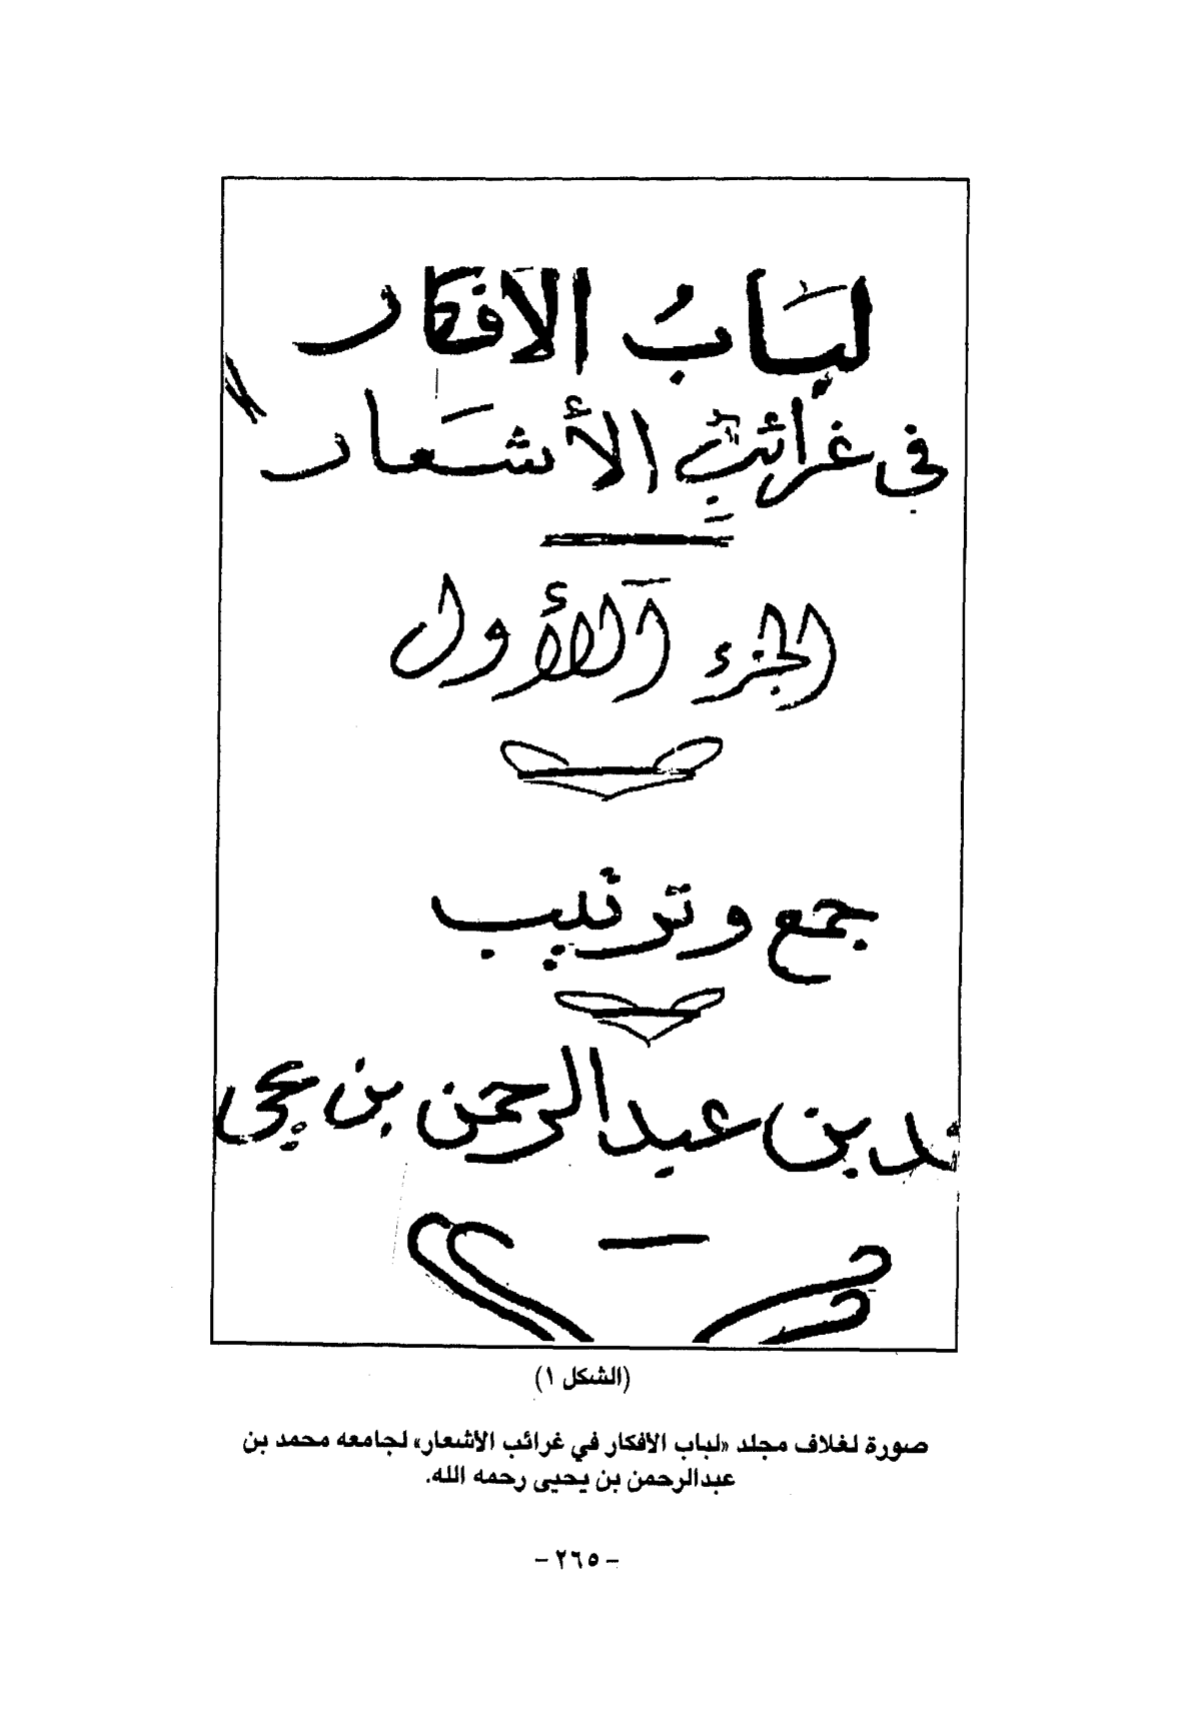 لبَابُ الأفكار
في غرائبِ الأشعَار
الجزء الأول
جمع وترتيب
بن عبدالرحمن بن يحيى
(الشكل ١)
صورة لغلاف مجلد «لباب الأفكار في غرائب الأشعار» لجامعه محمد بن
عبدالرحمن بن يحيى رحمه الله.
- ٢٦٥ -